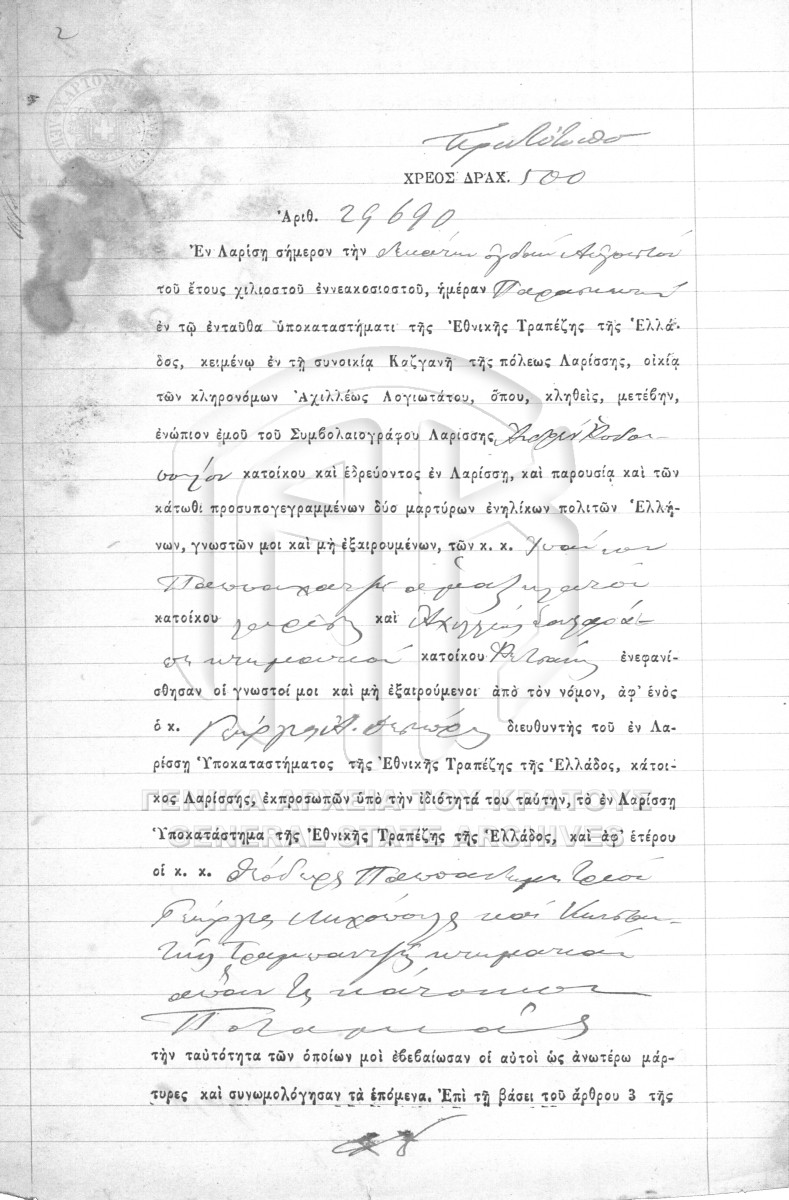 2
Πρωτότυπο
ΧΡΕΟΣ ΔΡΑΧ. 500
Ἀριθ. 29690
Ἐν Λαρίσῃ σήμερον τὴν δεκάτην ὀγδόην Αὐγούστου
τοῦ ἔτους χιλιοστοῦ ἐννεακοσιοστοῦ, ἡμέραν Παρασκευὴν
ἐν τῷ ἐνταῦθα ὑποκαταστήματι τῆς Ἐθνικῆς Τραπέζης τῆς Ἑλλά-
δος, κειμένῳ ἐν τῇ συνοικίᾳ Καζγανῆ τῆς πόλεως Λαρίσσης, οἰκίᾳ
τῶν κληρονόμων Ἀχιλλέως Λογιωτάτου, ὅπου, κληθεὶς, μετέβην,
ἐνώπιον ἐμοῦ τοῦ Συμβολαιογράφου Λαρίσσης
κατοίκου καὶ ἑδρεύοντος ἐν Λαρίσσῃ, καὶ παρουσίᾳ καὶ τῶν
κάτωθι προσυπογεγραμμένων δύο μαρτύρων ἐνηλίκων πολιτῶν Ἑλλή-
νων, γνωστῶν μοι καὶ μὴ ἐξαιρουμένων, τῶν κ. κ.
ἁμαξηλάτου
κατοίκου Λαρίσης καὶ Ἀχιλλέως
κτηματίου κατοίκου ἐνεφανί-
σθησαν οἱ γνωστοί μοι καὶ μὴ ἐξαιρούμενοι ἀπὸ τὸν νόμον, ἀφ' ἑνὸς
ὁ κ. Γεώργιος Α. διευθυντὴς τοῦ ἐν Λα-
ρίσσῃ Ὑποκαταστήματος τῆς Ἐθνικῆς Τραπέζης τῆς Ἑλλάδος, κάτοι-
κος Λαρίσσης, ἐκπροσωπῶν ὑπὸ τὴν ἰδιότητά του ταύτην, τὸ ἐν Λαρίσσῃ
Ὑποκατάστημα τῆς Ἐθνικῆς Τραπέζης τῆς Ἑλλάδος, καὶ ἀφ' ἑτέρου
οἱ κ. κ. Θεόδωρος Παπαδημητρίου
Γεώργιος καὶ Κωνσταν-
τῖνος κτηματίαι
ἅπαντες κάτοικοι
τὴν ταὐτότητα τῶν ὁποίων μοὶ ἐβεβαίωσαν οἱ αὐτοὶ ὡς ἀνωτέρω μάρ-
τυρες καὶ συνωμολόγησαν τὰ ἑπόμενα. Ἐπὶ τῇ βάσει τοῦ ἄρθρου 3 τῆς
ΓΕΝΙΚΑ ΑΡΧΕΙΑ ΤΟΥ ΚΡΑΤΟΥΣ
GENERAL STATE ARCHIVES